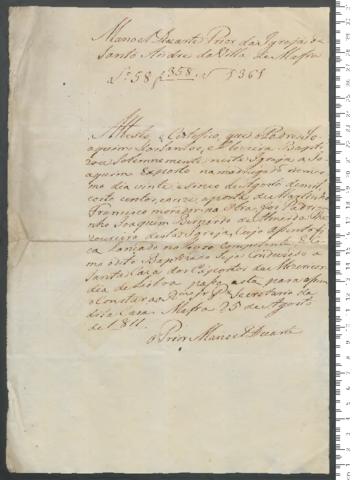 Manoel Duarte Prior da Igreja de
Santo Andre da Villa de Mafra
Nº 58 f 358 1361
Attesto, e Certefico, que o Padre Joa
quim dos Santos, e Oliveira Baptiz
zou solemnemente nesta Igreja a Jo
aquim Exposto na madrugada do mes
mo dia vinte e sinco de Agosto de mil
oito centos, e onze, a porta de Martinho
Francisco morador na Villa, foi Padri
nho Joaquim Bernardo de Almeida
desta Igreja, cujo assento fi
ca lançado no livro Competente. E co
mo o dito Baptizado seja Conduzido a
Santa Caza dos Expostos da Mizericor
dia de Lisboa passo esta para assim
Constar ao Secretario da
dita Caza. Mafra 25 de Agosto
de 1811.
o Prior Manoel Duarte